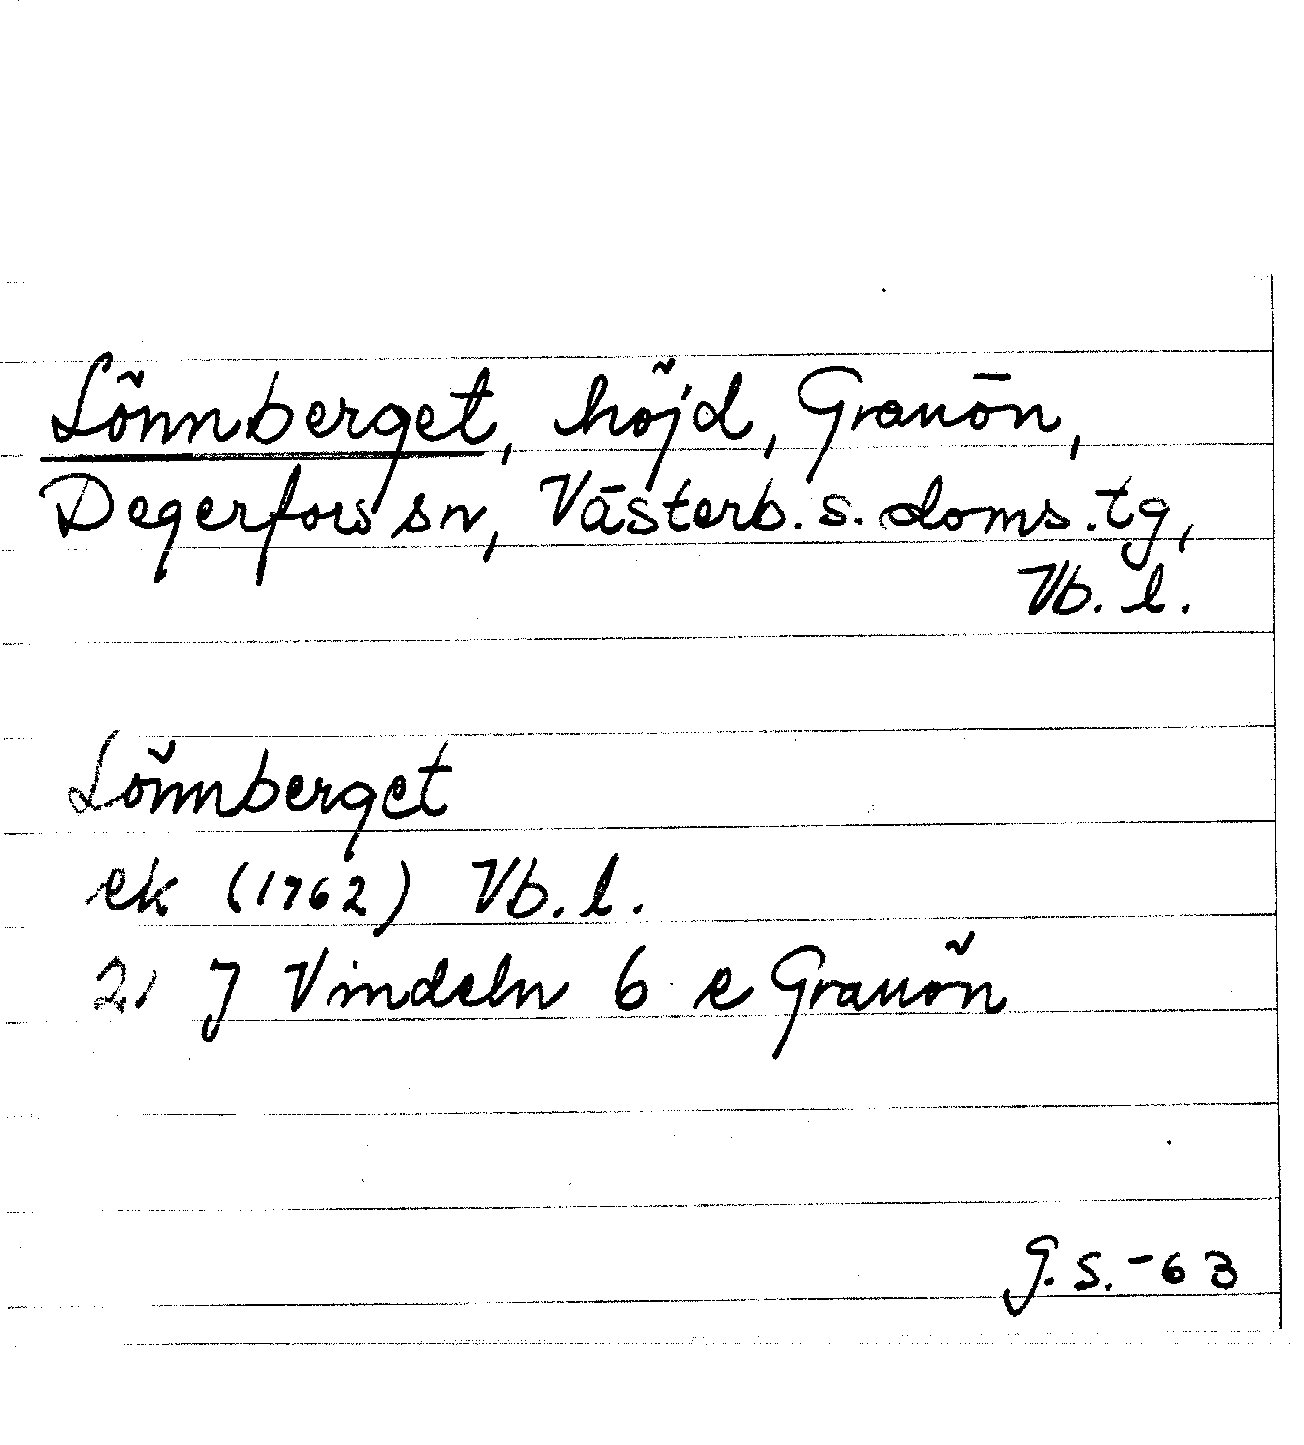 Lönnberget, höjd, Granön,
Degerfors sn, Västerb. s. doms. tg,
Vb. l.
Lönnberget
ek (1762) Vb. l.
21 J Vindeln 6 e Granön
G. S. -63